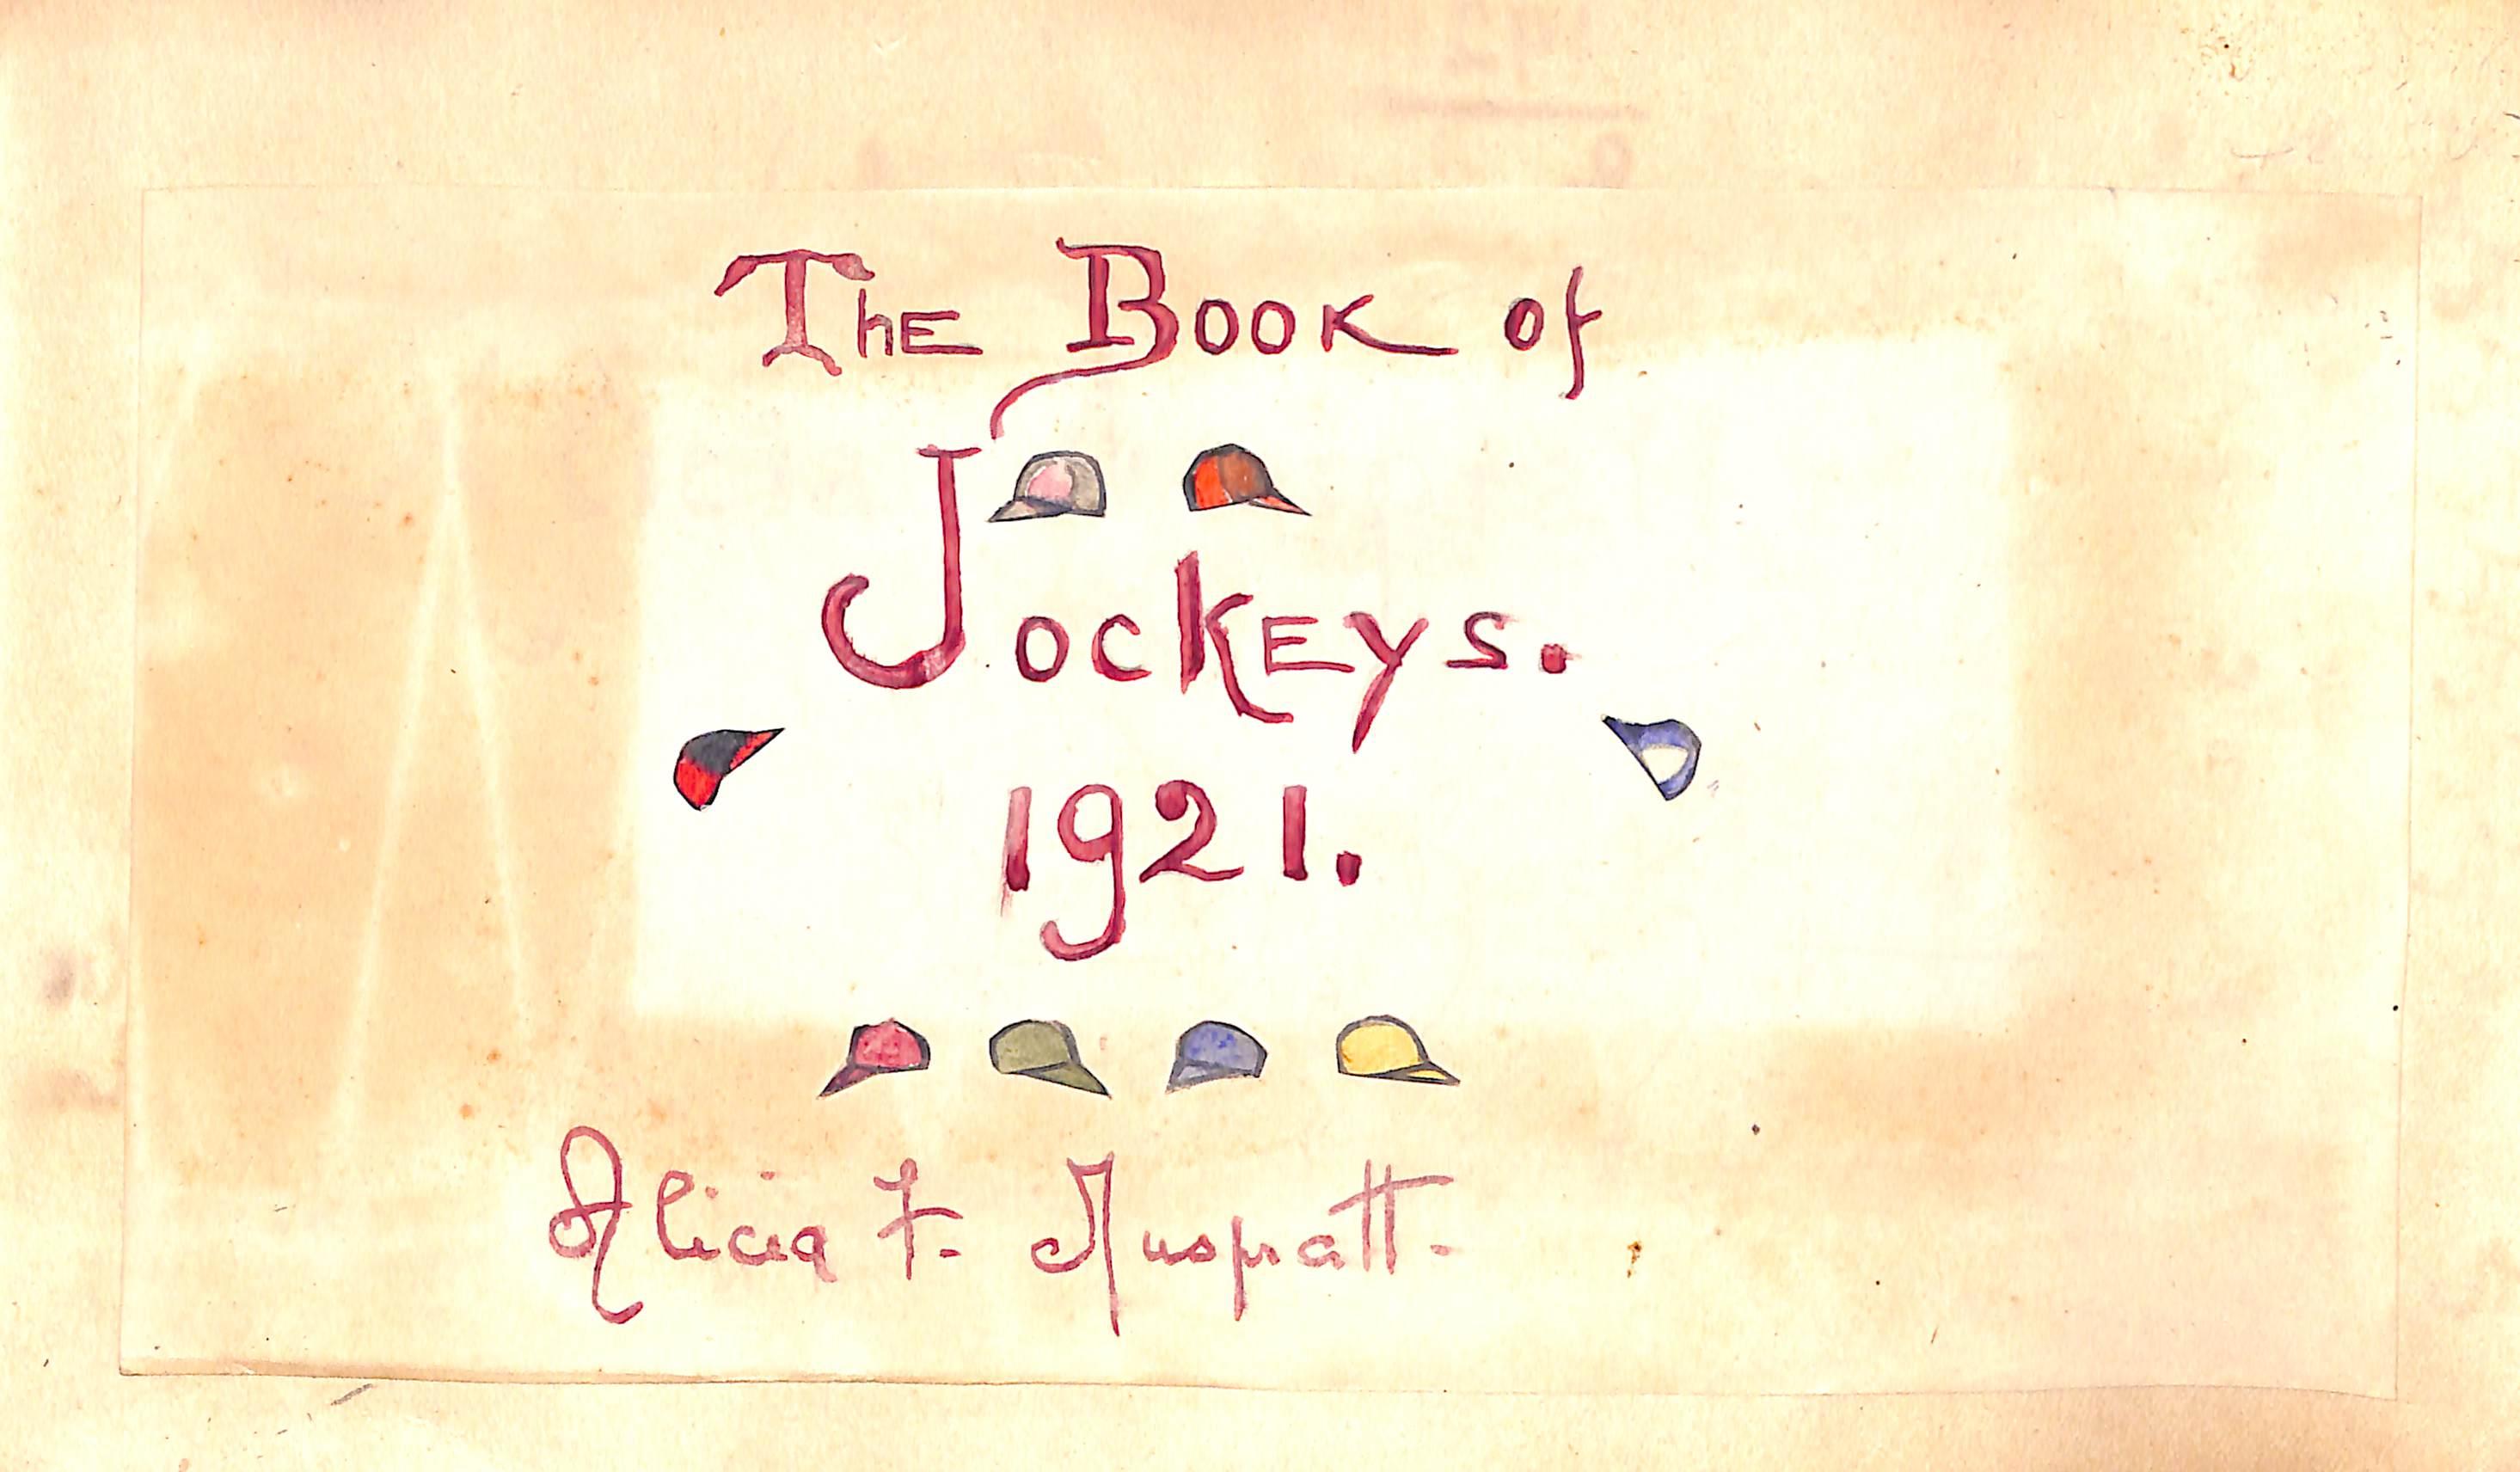 The Book of
Jockeys.
1921.
Alicia F. Muspratt.